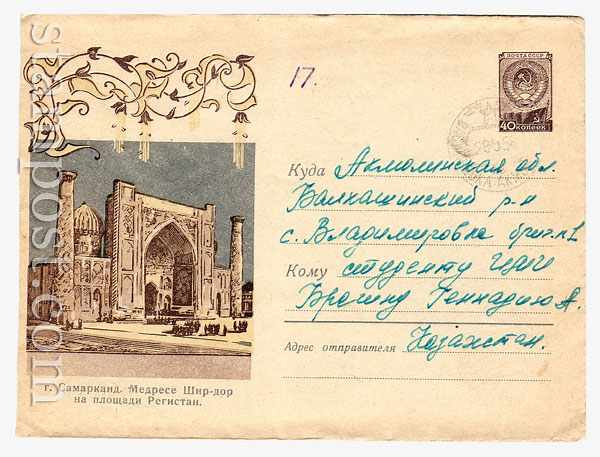 ПОЧТА СССР
40 КОПЕЕК
17.
Куда Акмолинская обл.
Балкашинский р-н
с. Владимировка бриг.
Кому студенту
Брагину Геннадию А.
Адрес отправителя Казахстан.
г. Самарканд. Медресе Шир-дор
на площади Регистан.
stampspost.com